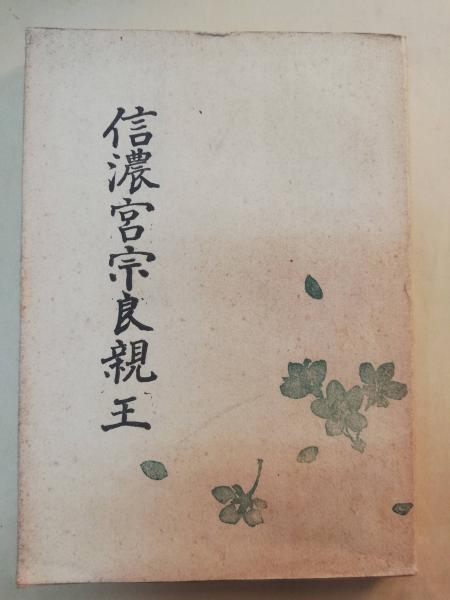 信濃宮宗良親王